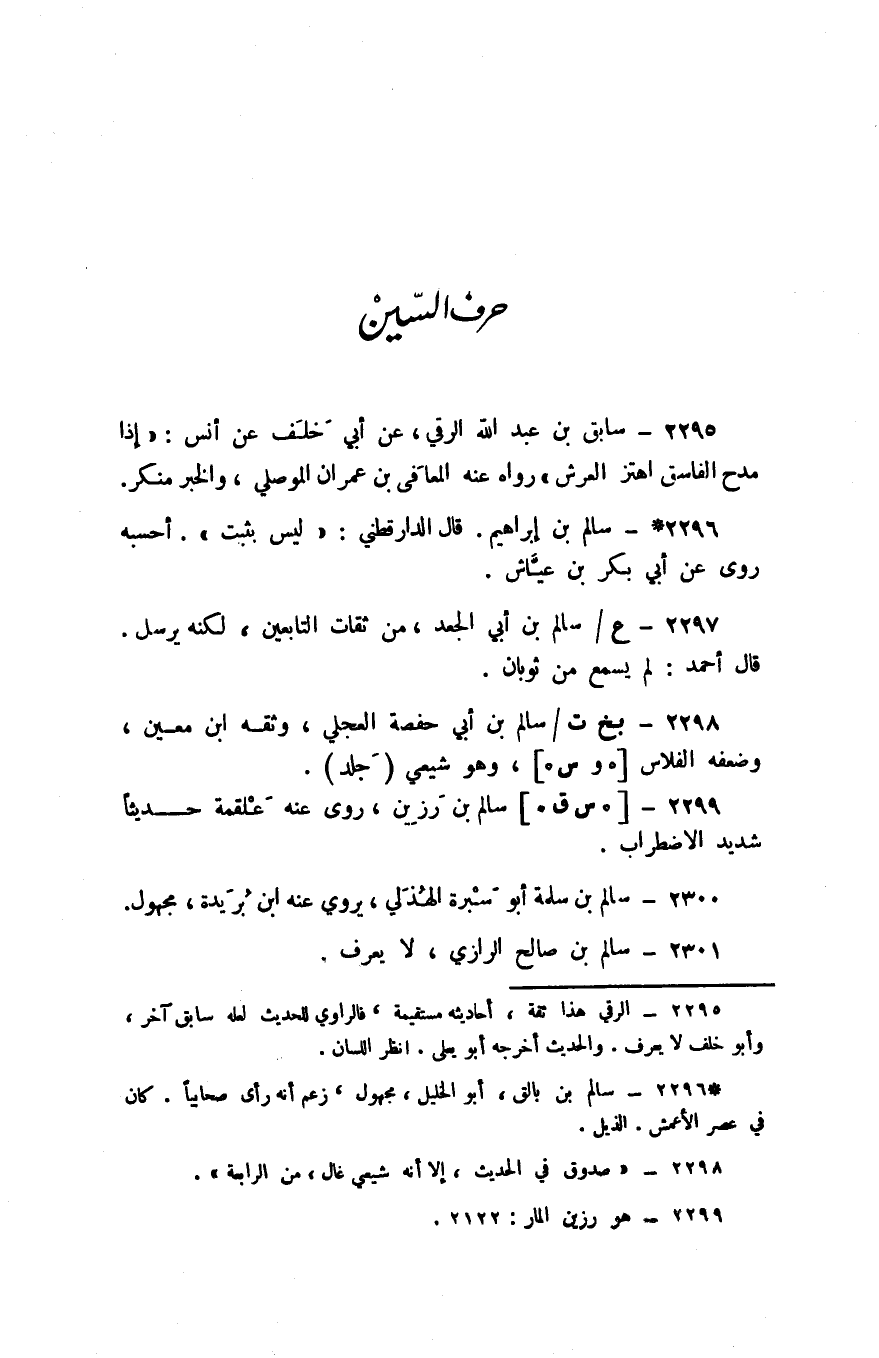 حرف السّين
٢٢٩٥ – سابق بن عبد الله الرقي، عن أبي خَلَف عن أنس : « إذا
مدح الفاسق اهتز العرش » رواه عنه المعافَى بن عمران الموصلي ، والخبر منكر.
٢٢٩٦* – سالم بن إبراهيم . قال الدارقطني : « ليس بثبت » . أحسبه
روى عن أبي بكر بن عيَّاش .
٢٢٩٧ – ع / سالم بن أبي الجعد ، من ثقات التابعين ، لكنه يرسل .
قال أحمد : لم يسمع من ثوبان .
٢٢٩٨ – بخ ت / سالم بن أبي حفصة العجلي ، وثقه ابن معين ،
وضعفه الفلاس [ ٥ و س ٥ ] ، وهو شيعي ( جَلد ) .
٢٢٩٩ – [ ٥ س ق ٥ ] سالم بن رَزين ، روى عنه عَلْقمة حديثاً
شديد الاضطراب .
٢٣٠٠ – سالم بن سلمة أبو سَبْرة الهُذَلي ، يروي عنه ابن بُرَيدة ، مجهول.
٢٣٠١ – سالم بن صالح الرازي ، لا يعرف .
٢٢٩٥ – الرقي هذا ثقة ، أحاديثه مستقيمة ، فالراوي للحديث لعله سابق آخر ،
وأبو خلف لا يعرف . والحديث أخرجه أبو يعلى . انظر اللسان .
*٢٢٩٦ – سالم بن بالق ، أبو الخليل ، مجهول ، زعم أنه رأى صحابياً . كان
في عصر الأعمش . الذيل .
٢٢٩٨ – « صدوق في الحديث ، إلا أنه شيعي غال ، من الرابعة » .
٢٢٩٩ – هو رزين المار : ٢١٢٢ .